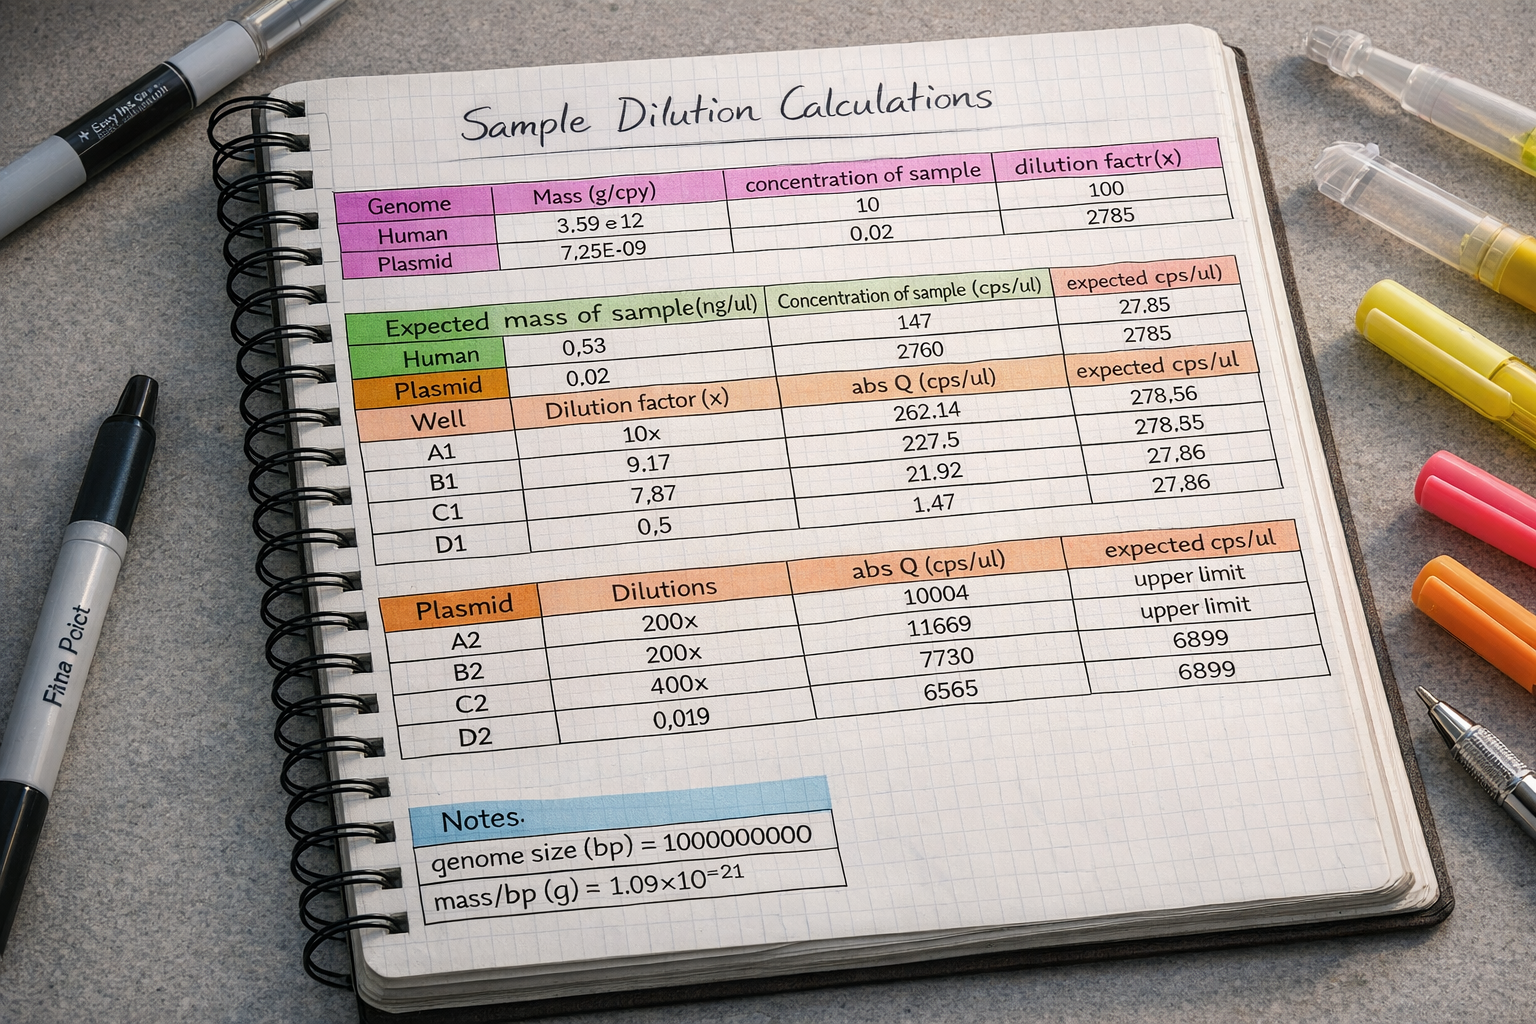 Sample Dilution Calculations
Genome Mass (g/cpy) concentration of sample dilution factr(x)
Human 3.59 e12 10 100
Plasmid 7,25E-09 0.02 2785
Expected mass of sample(ng/ul) Concentration of sample (cps/ul) expected cps/ul)
Human 0,53 147 27.85
Plasmid 0,02 2760 2785
Well Dilution factor (x) abs Q (cps/ul) expected cps/ul
A1 10x 262.14 278,56
B1 9.17 227.5 278.85
C1 7,87 21.92 27,86
D1 0,5 1.47 27,86
Plasmid Dilutions abs Q (cps/ul) expected cps/ul
A2 200x 10004 upper limit
B2 200x 11669 upper limit
C2 400x 7730 6899
D2 0,019 6565 6899
Notes.
genome size (bp) = 1000000000
mass/bp (g) = 1.09×10⁼²¹
Fina Poict